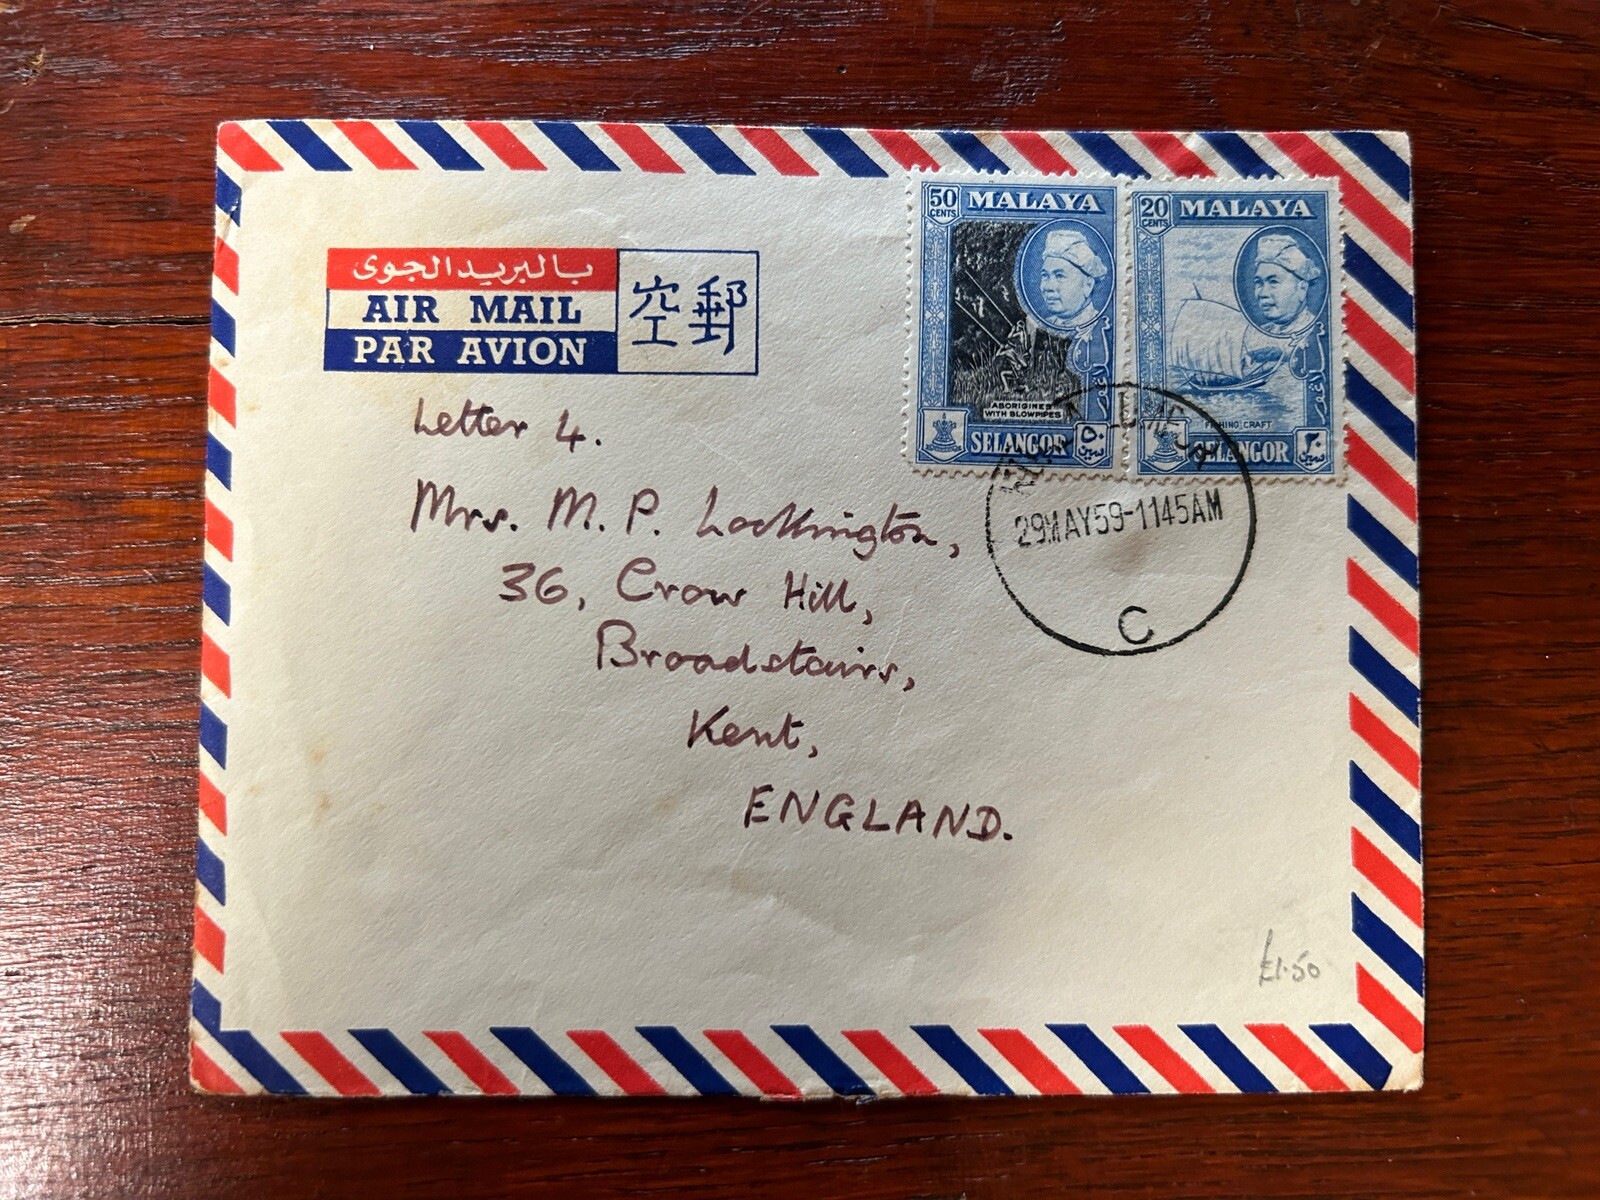 بالبريد الجوى
AIR MAIL
PAR AVION
空郵
50 CENTS
MALAYA
ABORIGINES
WITH BLOWPIPES
SELANGOR
٥٠
سين
20 CENTS
MALAYA
FISHING CRAFT
SELANGOR
٢٠
سين
29MAY59-1145AM
C
Letter 4.
Mrs. M. P. Lockington,
36, Crow Hill,
Broadstairs,
Kent,
ENGLAND.
£1.50